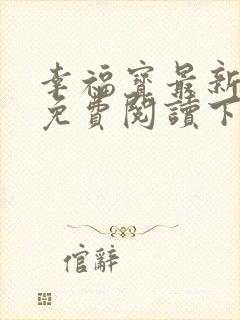 幸福寶最新
免費閱讀下
倌辭